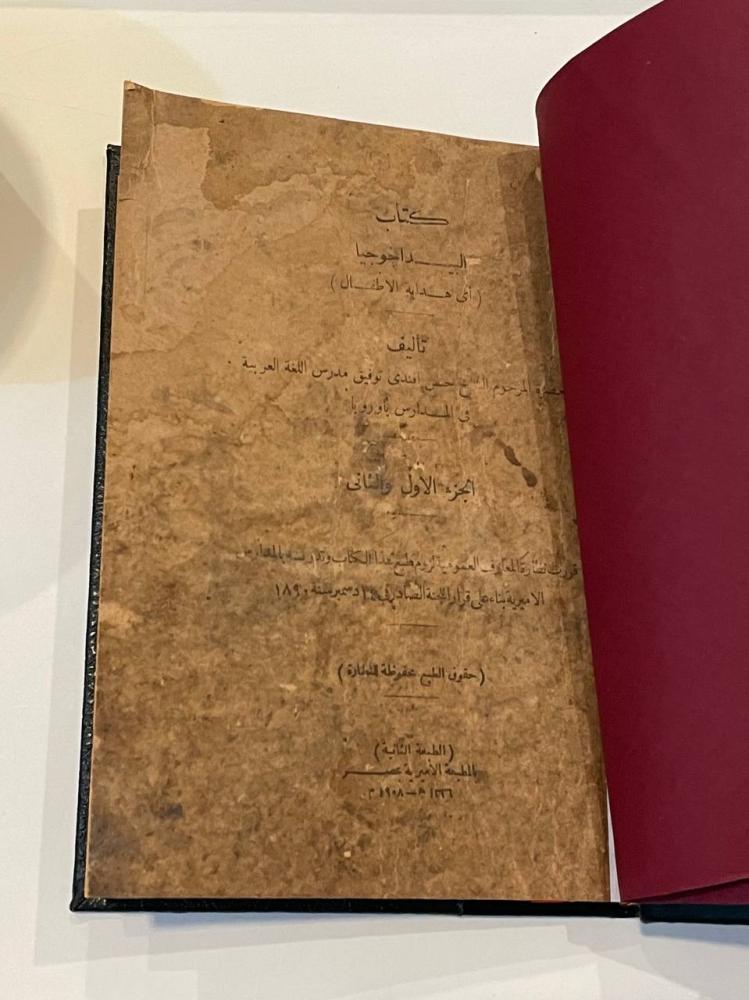 كتاب
البيداجوجيا
(أى هداية الاطفال)
تأليف
حضرة المرحوم الشيخ حسن افندى توفيق مدرس اللغة العربية
فى المدارس بأوروبا
الجزء الاول والثانى
قررت نظارة المعارف العمومية لزوم طبع هذا الكتاب وتدريسه بالمدارس
الاميرية بناء على قرار اللجنة الصادر فى دسمبر سنة ١٨٩٠
(حقوق الطبع محفوظة للنظارة)
(الطبعة الثانية)
بالمطبعة الأميرية بمصر
١٣٢٦ ه – ١٩٠٨ م